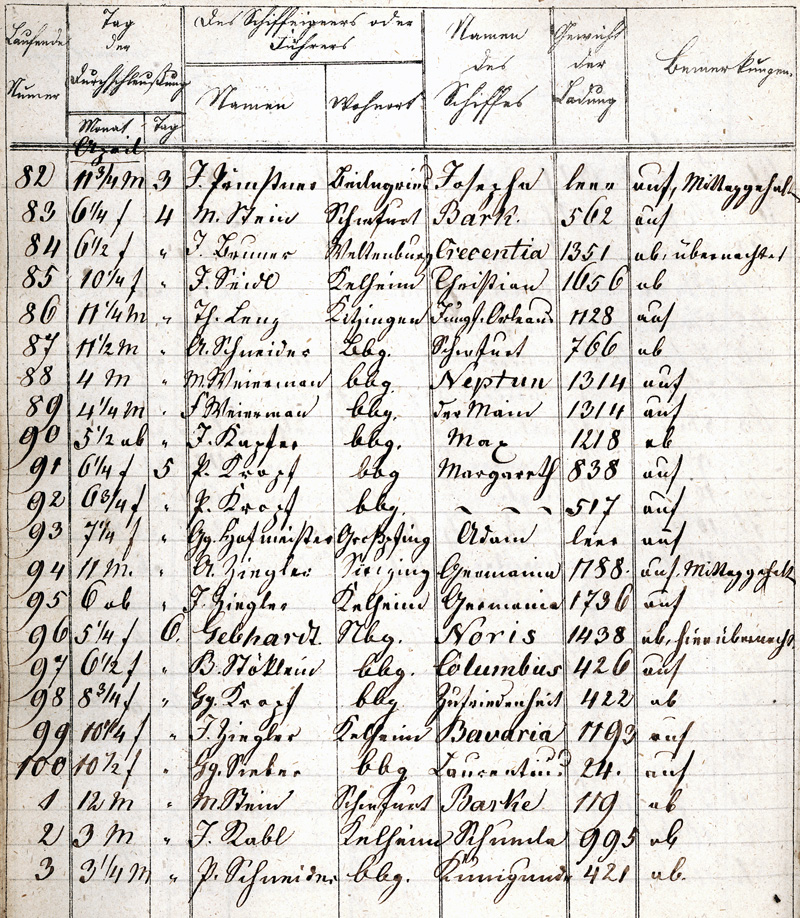 Laufende Numer | Tag der Durchschleußung | Des Schiffeigners oder Führers | Namen des Schiffes | Gewicht der Ladung | Bemerkungen.
Monat | Tag | Namen | Wohnort
April
82 11 3/4 M 3 J. Beilngries Josepha leer auf, Mittaggehalt
83 6 1/4 f 4 M. Stein Schwfurt Bark. 562 auf
84 6 1/2 f " J. Bruner Weltenburg Crecentia 1351 ab, übernachtet
85 10 1/4 f " J. Seidl Kelheim Christian 1656 ab
86 11 1/4 M " Th. Lenz Kitzingen Jungf. Orleans 1128 auf
87 11 1/2 M " A. Schneider Bbg. Schwfurt 766 ab
88 4 M " M. Weierman bbg. Neptun 1314 auf
89 4 1/4 M " F Weierman bbg. der Main 1314 auf
90 5 1/2 ab " J. Kapfer bbg. Max 1218 ab
91 6 1/4 f 5 P. Kropf bbg Margareth 838 auf
92 6 3/4 f " P. Kropf bbg. ~ ~ ~ 517 auf
93 7 1/4 f " Gg. Hofmeister Adam leer auf
94 11 M. " A. Ziegler Germania 1788. auf. Mittaggehalt
95 6 ab " J. Ziegler Kelheim Germania 1736 auf
96 5 1/4 f 6. Gebhardt Nbg. Noris 1438 ab, hier übernacht.
97 6 1/2 f " B. Stöklein bbg. Columbus 426 auf
98 8 3/4 f " Gg. Kropf bbg Zufriedenheit 422 ab
99 10 1/4 f " J. Ziegler Kelheim Bavaria 1193 auf
100 10 1/2 f " Gg. Sieber bbg Laurentius 24. auf
1 12 M " M. Stein Schwfurt Barke 119 ab
2 3 M " J. Rabl Kelheim 995 ab
3 3 1/4 M " P. Schneider bbg. Kunigunde 421 ab.